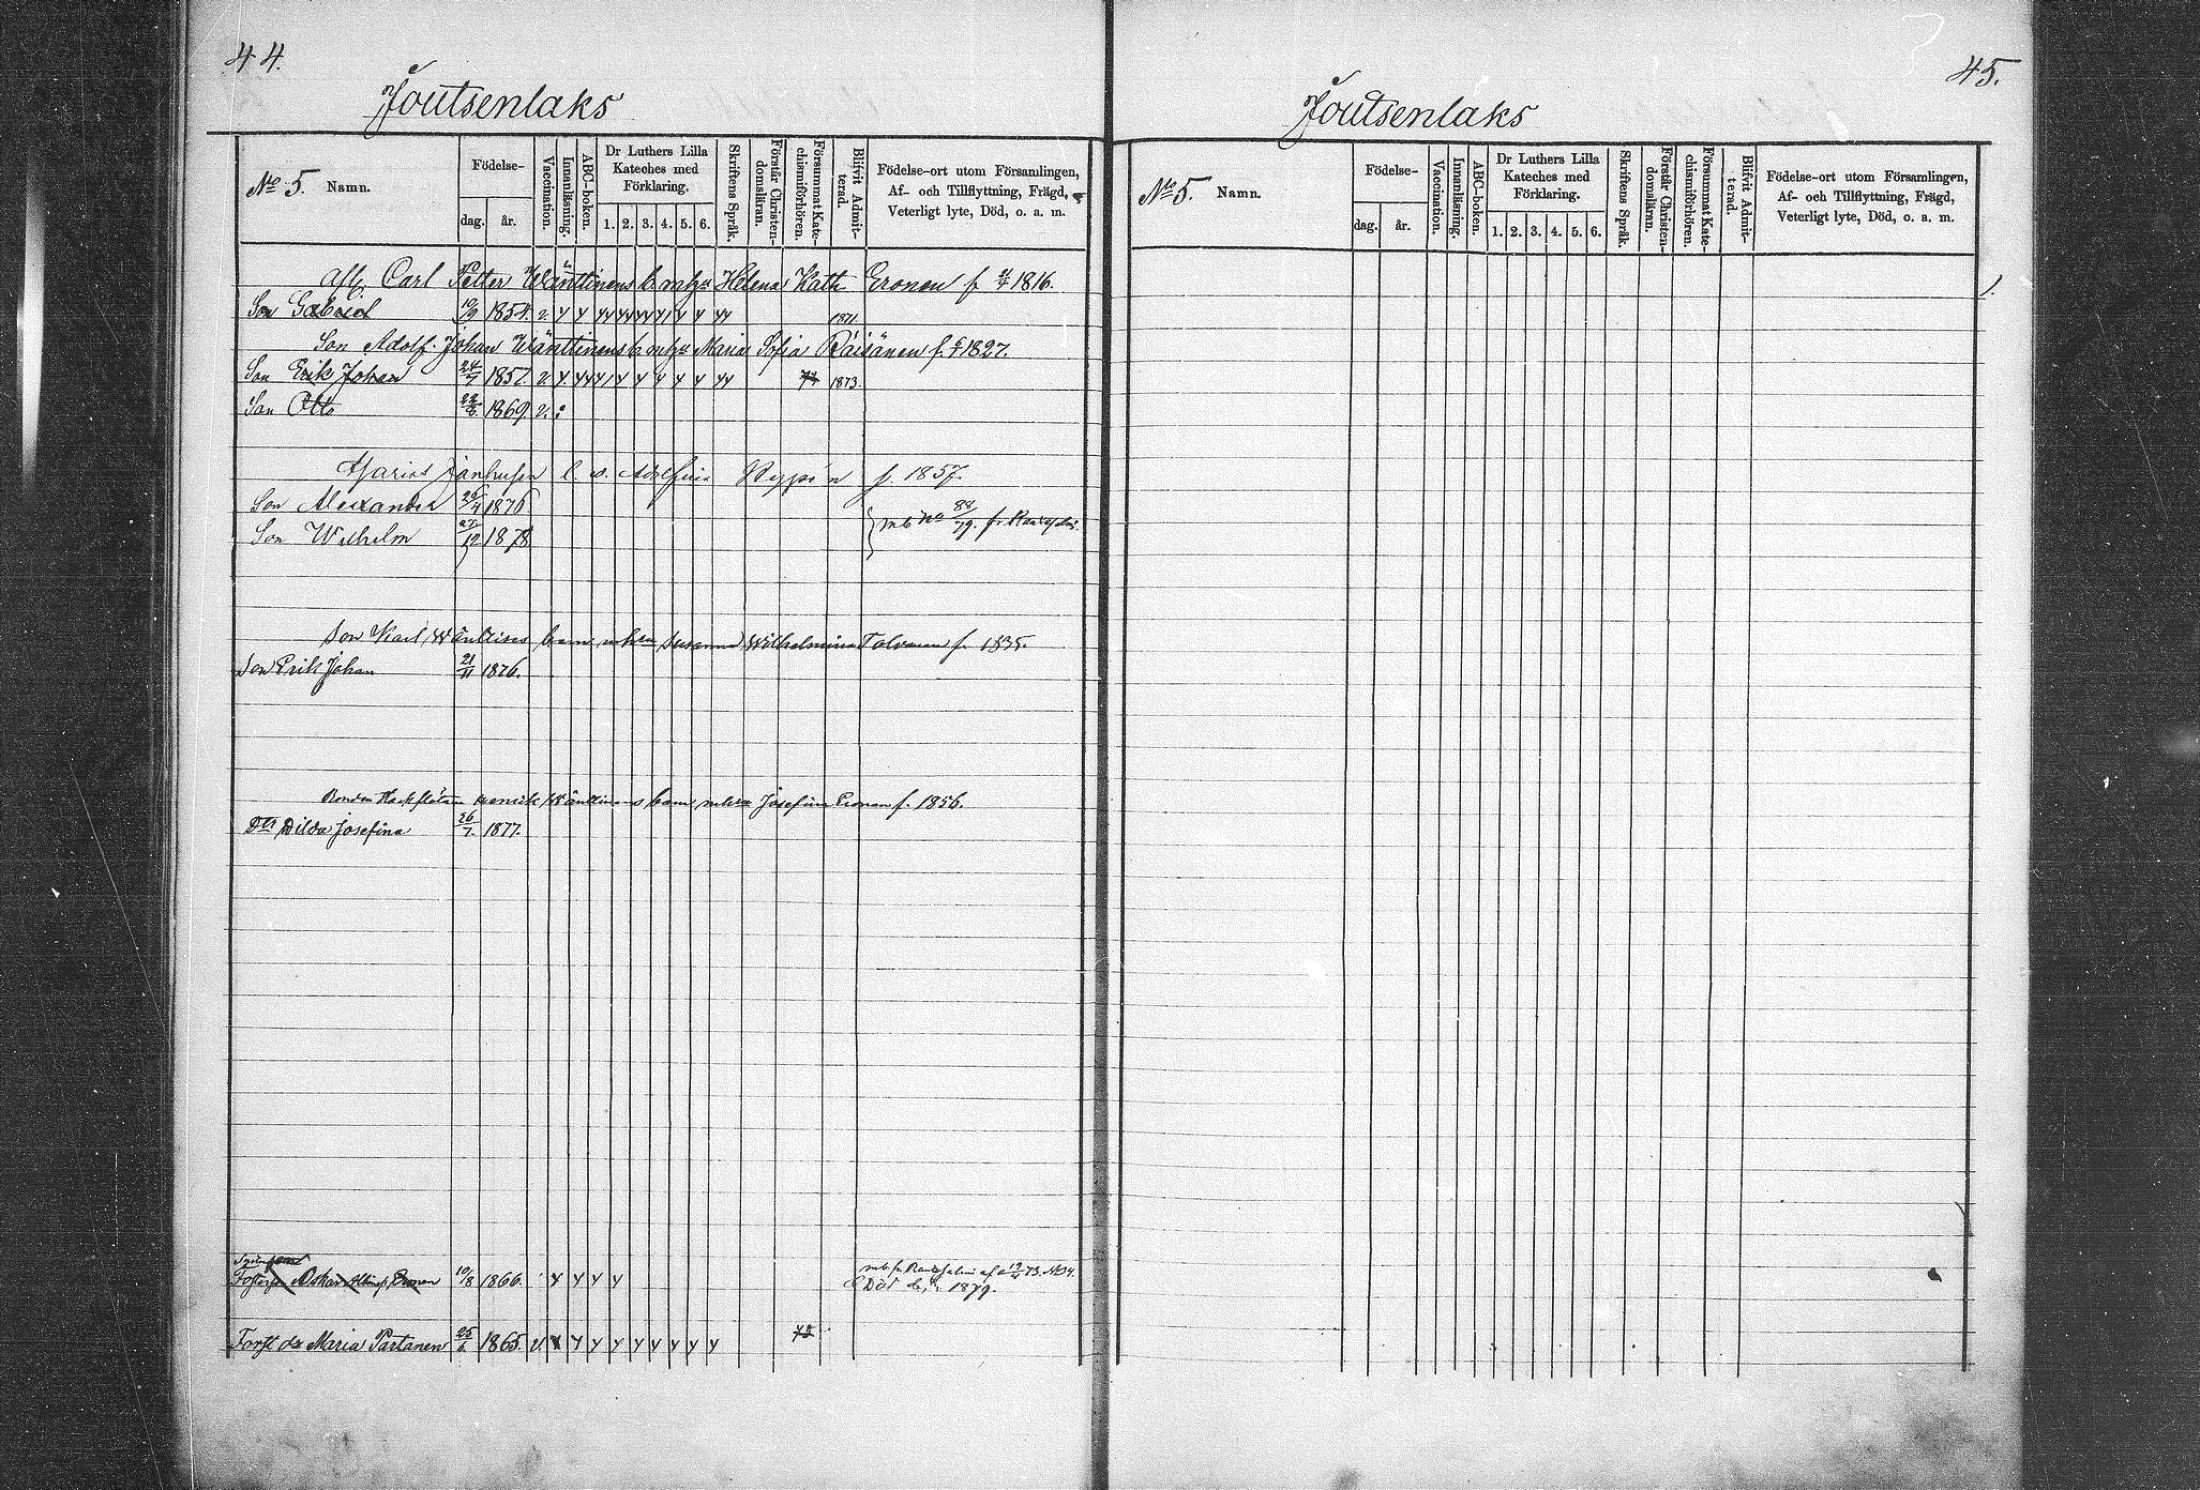 44.
Joutsenlaks
No 5. Namn.
Födelse-
dag. år.
Vaccination.
Innanläsning.
ABC-boken.
Dr Luthers Lilla
Kateches med
Förklaring.
1. 2. 3. 4. 5. 6.
Skriftens Språk.
Förstår Christen-
domsläran.
Försummat Kate-
chismiförhören.
Blifvit Admit-
terad.
Födelse-ort utom Församlingen,
Af- och Tillflyttning, Frägd,
Veterligt lyte, Död, o. a. m.
Afl. Carl Petter Wänttinens b. m hu Helena Kath Eronen f. 1816.
Son Gabriel 10/9 1854. v. 1871.
Son Adolf Johan Wänttinens b. m hu Maria Sofia Räisänen f. 1827.
Son Erik Johan 24/7 1857. v. 1873.
Son Otto 1869. v.
Janhusen Adolfina f. 1857.
Son Alexander 26/4 1876
Son Wilhelm 27/12 1878
mb no 88/79. fr Rantasalmi.
Son Karl Wänttinens barn m hu Susanna Wilhelmina Tolvanen f. 1835.
Son Erik Johan 21/11 1876.
Bonden Henrik Wänttinens barn m hu Josefina Eronen f. 1856.
Dtr Hilda Josefina 26/7. 1877.
Oskar Albin Eronen 10/8 1866.
mb fr Rantasalmi af 73. No 94.
Död 1879.
Forst dr Maria Partanen 25/6. 1865. v.
45.
Joutsenlaks
No 5. Namn.
Födelse-
dag. år.
Vaccination.
Innanläsning.
ABC-boken.
Dr Luthers Lilla
Kateches med
Förklaring.
1. 2. 3. 4. 5. 6.
Skriftens Språk.
Förstår Christen-
domsläran.
Försummat Kate-
chismiförhören.
Blifvit Admit-
terad.
Födelse-ort utom Församlingen,
Af- och Tillflyttning, Frägd,
Veterligt lyte, Död, o. a. m.